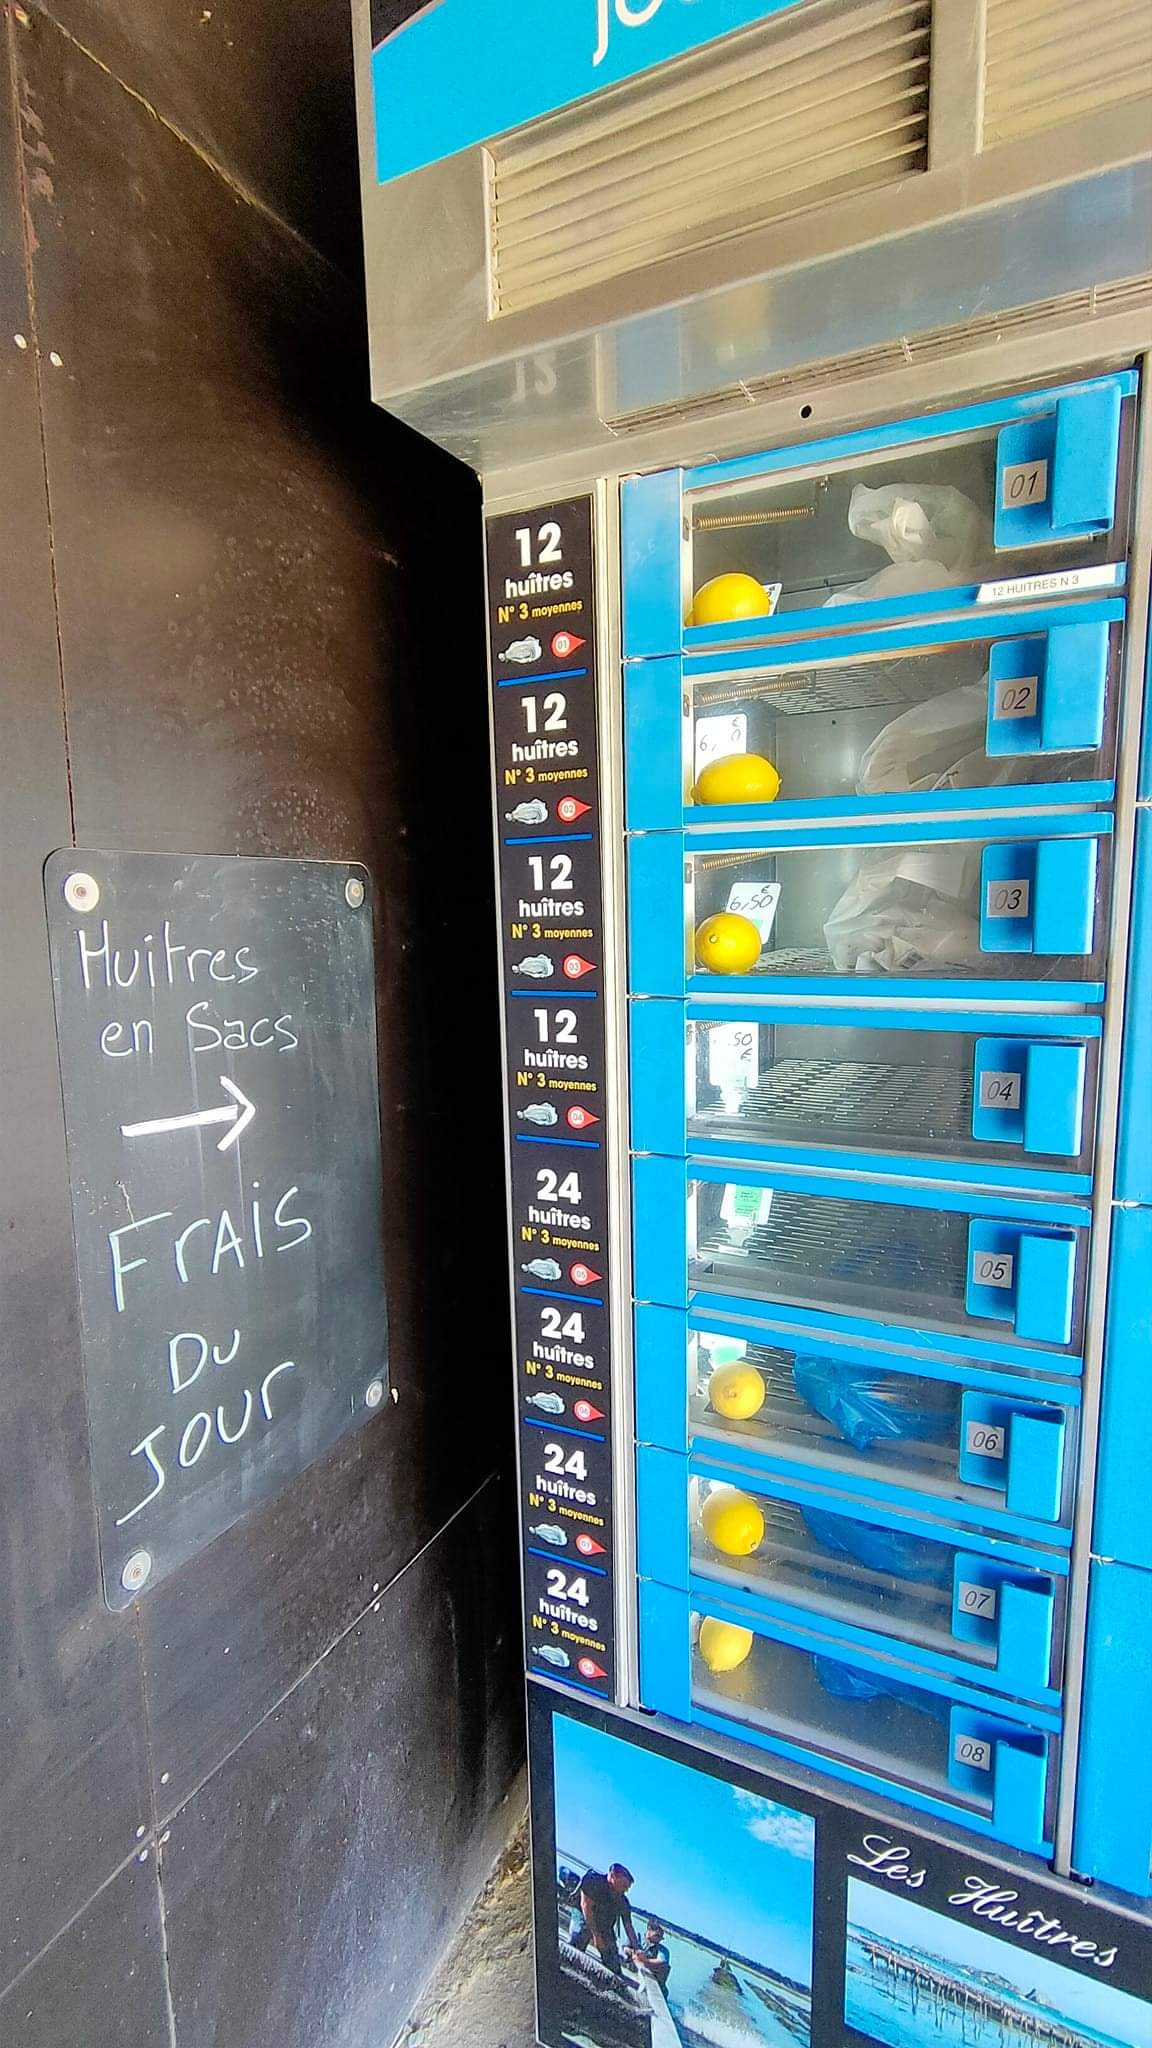 Huitres
en Sacs
→
FrAis
DU
JOUr
12
huîtres
N° 3 moyennes
01
12
huîtres
N° 3 moyennes
02
12
huîtres
N° 3 moyennes
03
12
huîtres
N° 3 moyennes
04
24
huîtres
N° 3 moyennes
05
24
huîtres
N° 3 moyennes
06
24
huîtres
N° 3 moyennes
24
huîtres
N° 3 moyennes
01
12 HUITRES N 3
02
03
6,50 €
04
,50 €
05
06
07
08
Les Huîtres